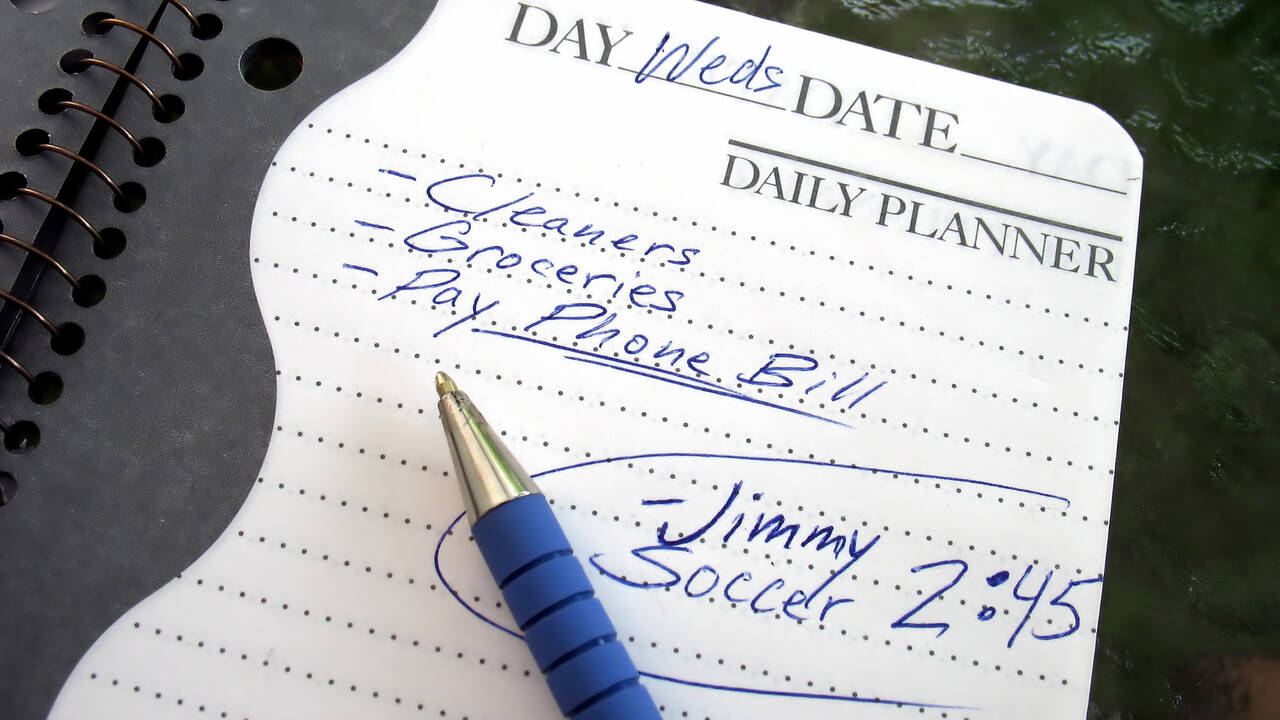 DAY Weds DATE
DAILY PLANNER
- Cleaners
- Groceries
- Pay Phone Bill
- Jimmy
Soccer 2:45